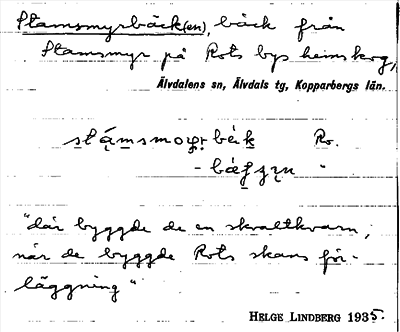 Stamsmyrbäck(en), bäck från
Stamsmyr på Rots bys hemskog,
Älvdalens sn, Älvdals tg, Kopparbergs län.
Ro.
"
"där byggde de en skvaltkvarn,
när de byggde Rots skans för-
läggning"
HELGE LINDBERG 1935.